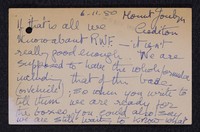 6.11.80 Mount Joulyn
Crediton
If that is all we
know about RWF — it isn't
really good enough. We are
supposed to have the whole formula
— that of the bad
so when you write to
tell them we are ready for
the boxes, you could also say
we are still waiting to know what